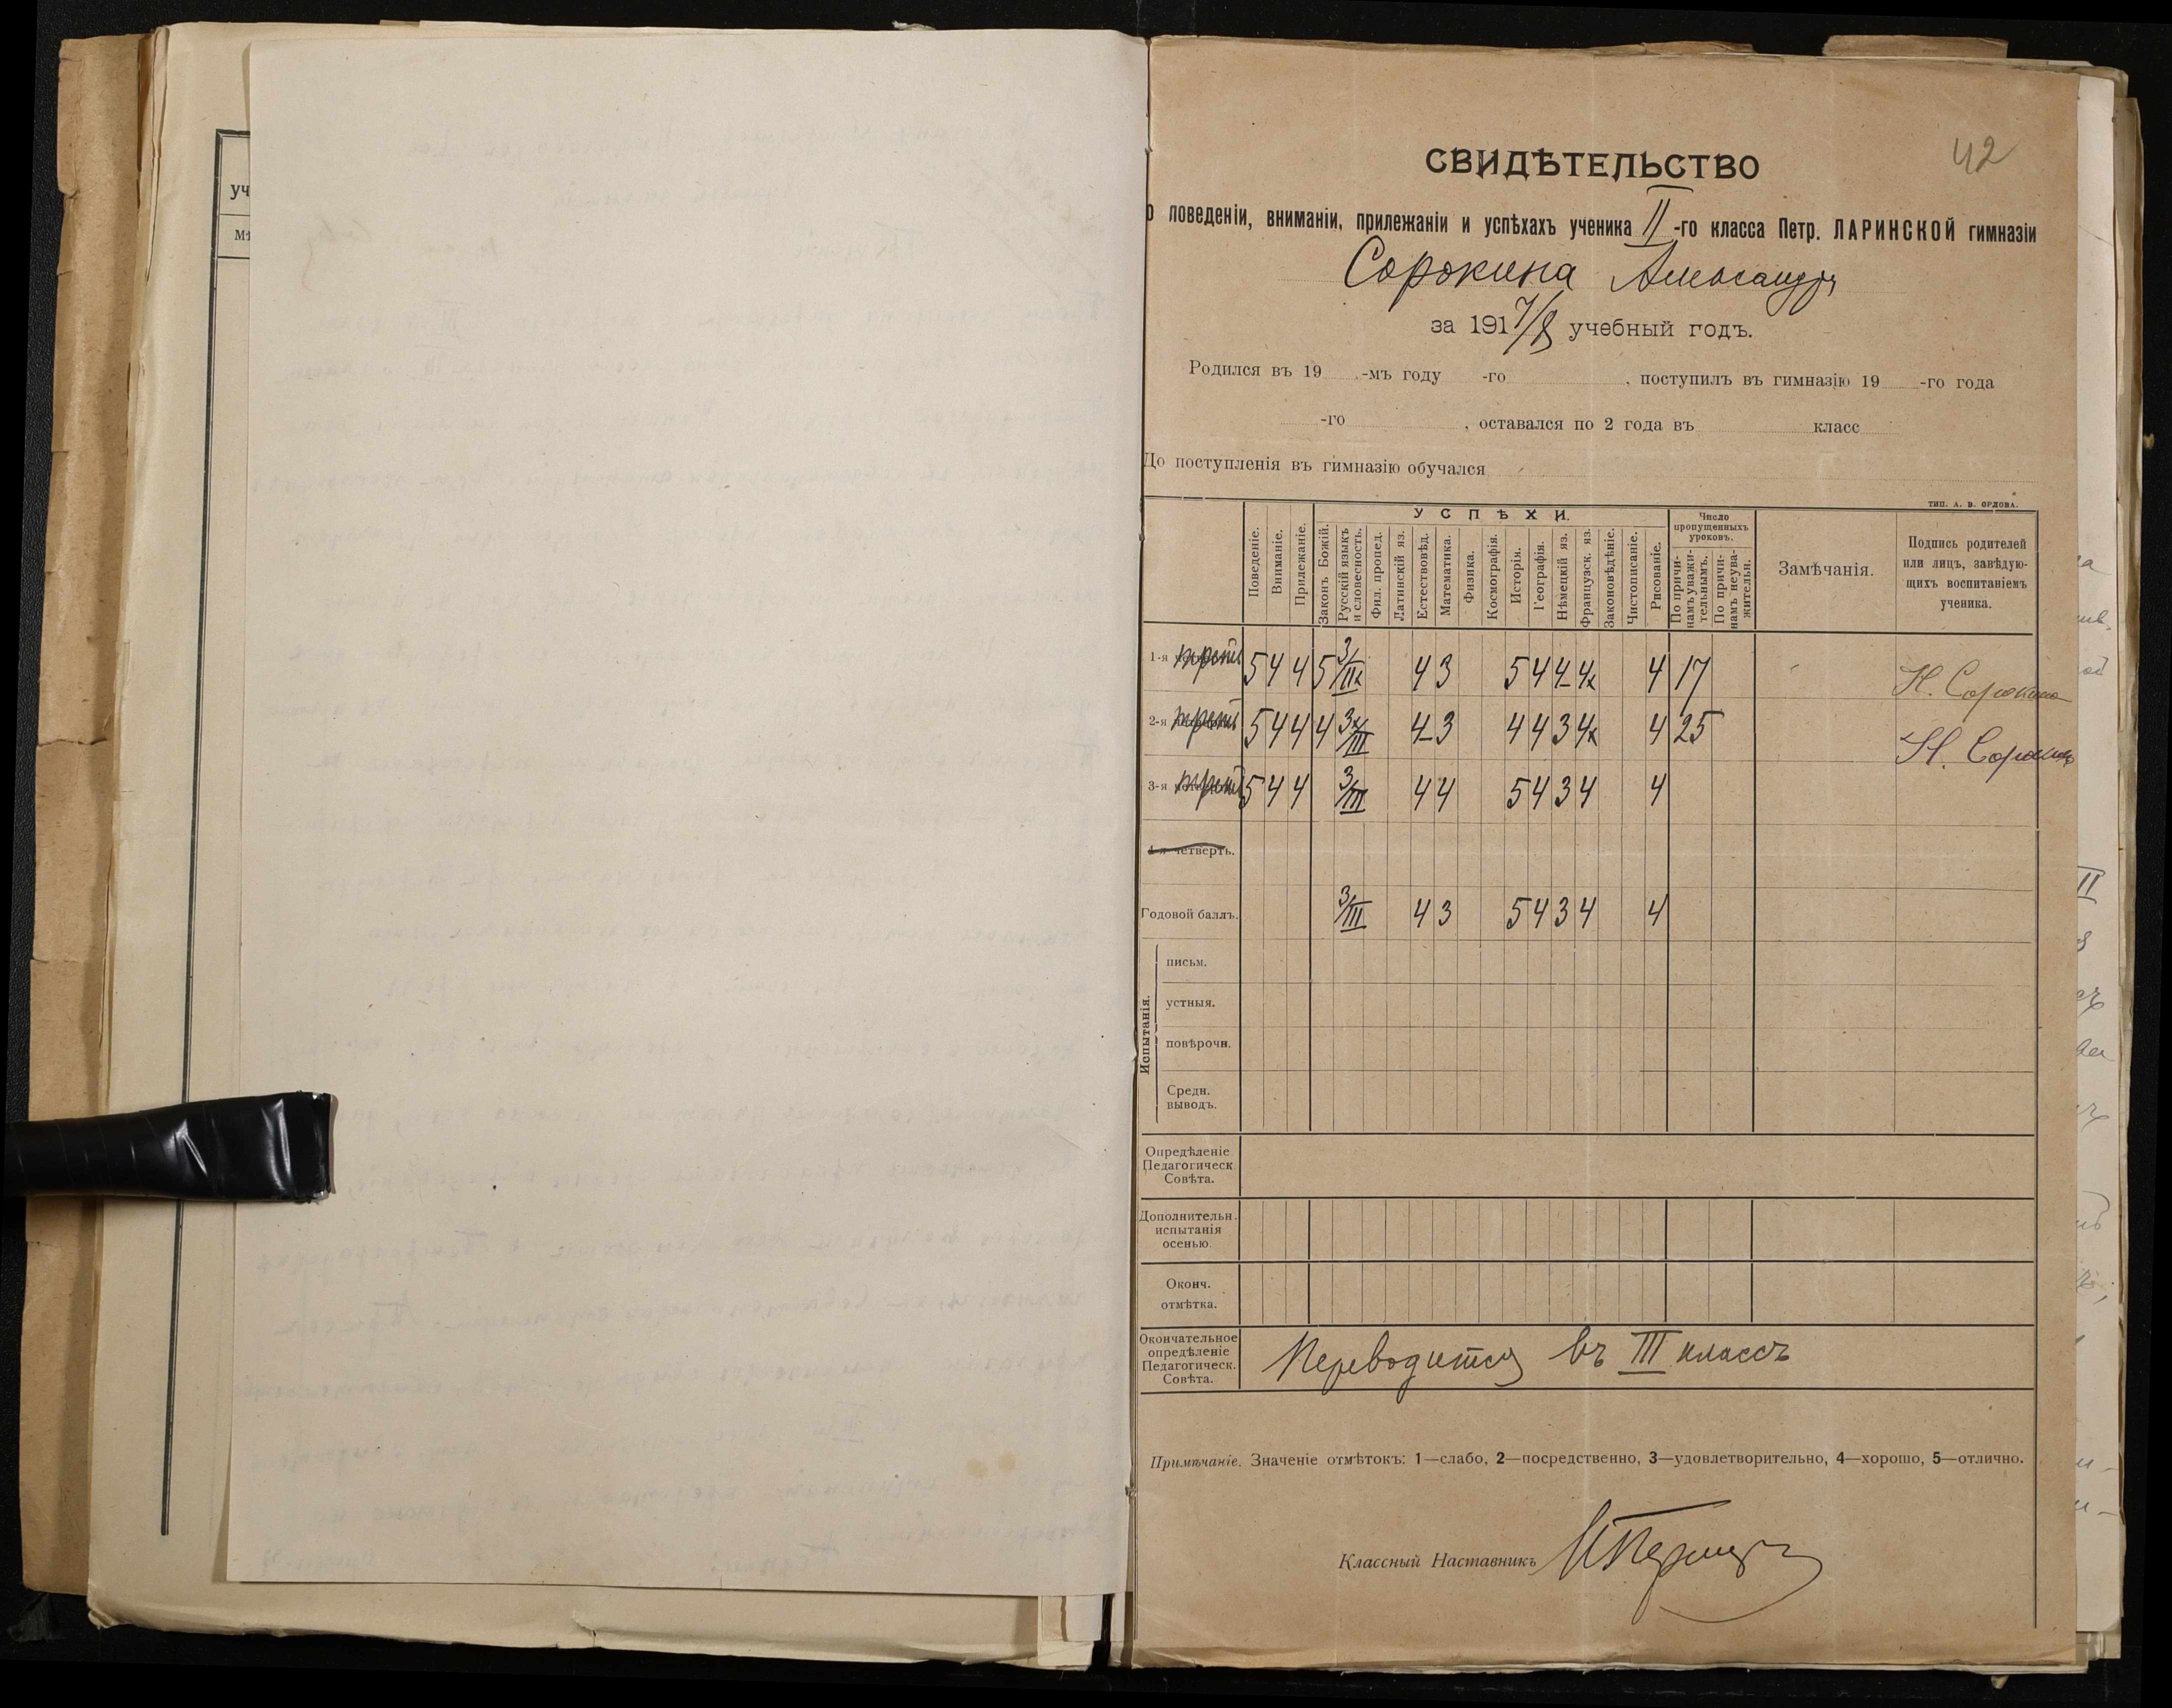 42
СВИДѢТЕЛЬСТВО
о поведеніи, вниманіи, прилежаніи и успѣхахъ ученика II-го класса Петр. ЛАРИНСКОЙ гимназіи
Сорокина Александра
за 1917/8 учебный годъ.
Родился въ 19 -мъ году -го , поступилъ въ гимназію 19 -го года
-го , оставался по 2 года въ класс
До поступленія въ гимназію обучался
ТИП. А. В. ОРЛОВА.
УСПѢХИ.
Поведеніе. Вниманіе. Прилежаніе. Законъ Божій. Русскій языкъ и словесность. Фил. пропед. Латинскій яз. Естествовѣд. Математика. Физика. Космографія. Исторія. Географія. Нѣмецкій яз. Французск. яз. Законовѣдѣніе. Чистописаніе. Рисованіе.
Число пропущенныхъ уроковъ.
По причинамъ уважительнымъ. По причинамъ неуважительн.
Замѣчанія.
Подпись родителей или лицъ, завѣдующихъ воспитаніемъ ученика.
1-я треть 5 4 4 5 3/III 4 3 5 4 4 4 4 17 Н. Сорокина
2-я треть 5 4 4 4 3/III 4 3 4 4 3 4 4 25 Н. Сорокина
3-я треть 5 4 4 3/III 4 4 5 4 3 4 4
4-я четверть.
Годовой баллъ. 3/III 4 3 5 4 3 4 4
Испытанія.
письм.
устныя.
повѣрочн.
Средн. выводъ.
Опредѣленіе Педагогическ. Совѣта.
Дополнительн. испытанія осенью.
Оконч. отмѣтка.
Окончательное опредѣленіе Педагогическ. Совѣта. Переводится въ III классъ
Примѣчаніе. Значеніе отмѣтокъ: 1—слабо, 2—посредственно, 3—удовлетворительно, 4—хорошо, 5—отлично.
Классный Наставникъ